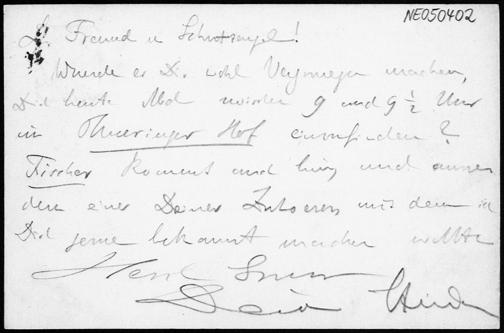 NE050402
L. Freund u Schutzengel!
Wuerde es Dir wohl Vergnuegen machen,
Dich heute Abd zwischen 9 und 9 1/2 Uhr
im Thueringer Hof einzufinden?
Fischer kommt und und
dem einer Deiner mit dem ich
Dich gerne bekannt machen wollte
Herzl
Dein